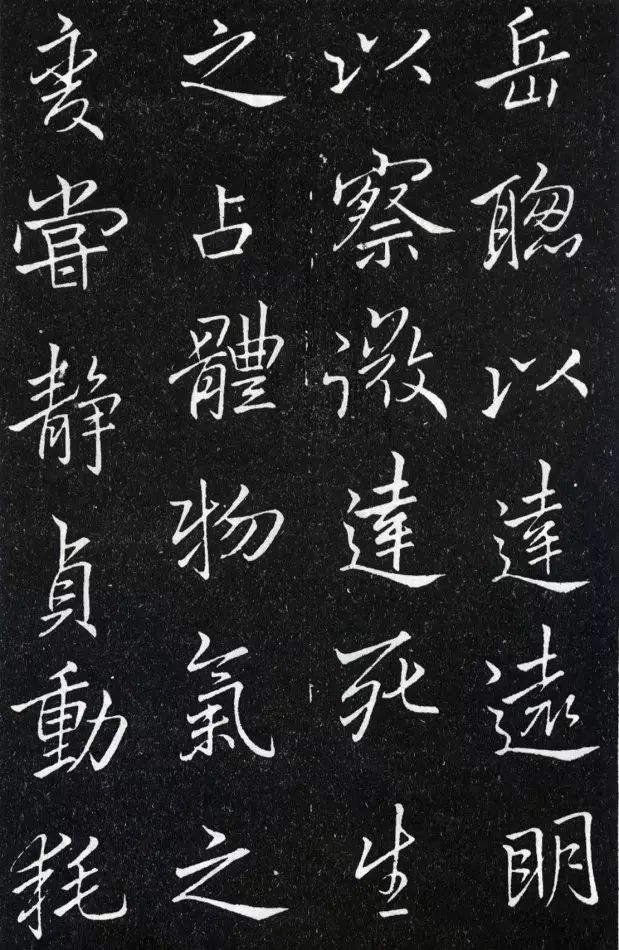 岳聰以達遠明
以察微達死生
之占體物氣之
変嘗靜貞動耗